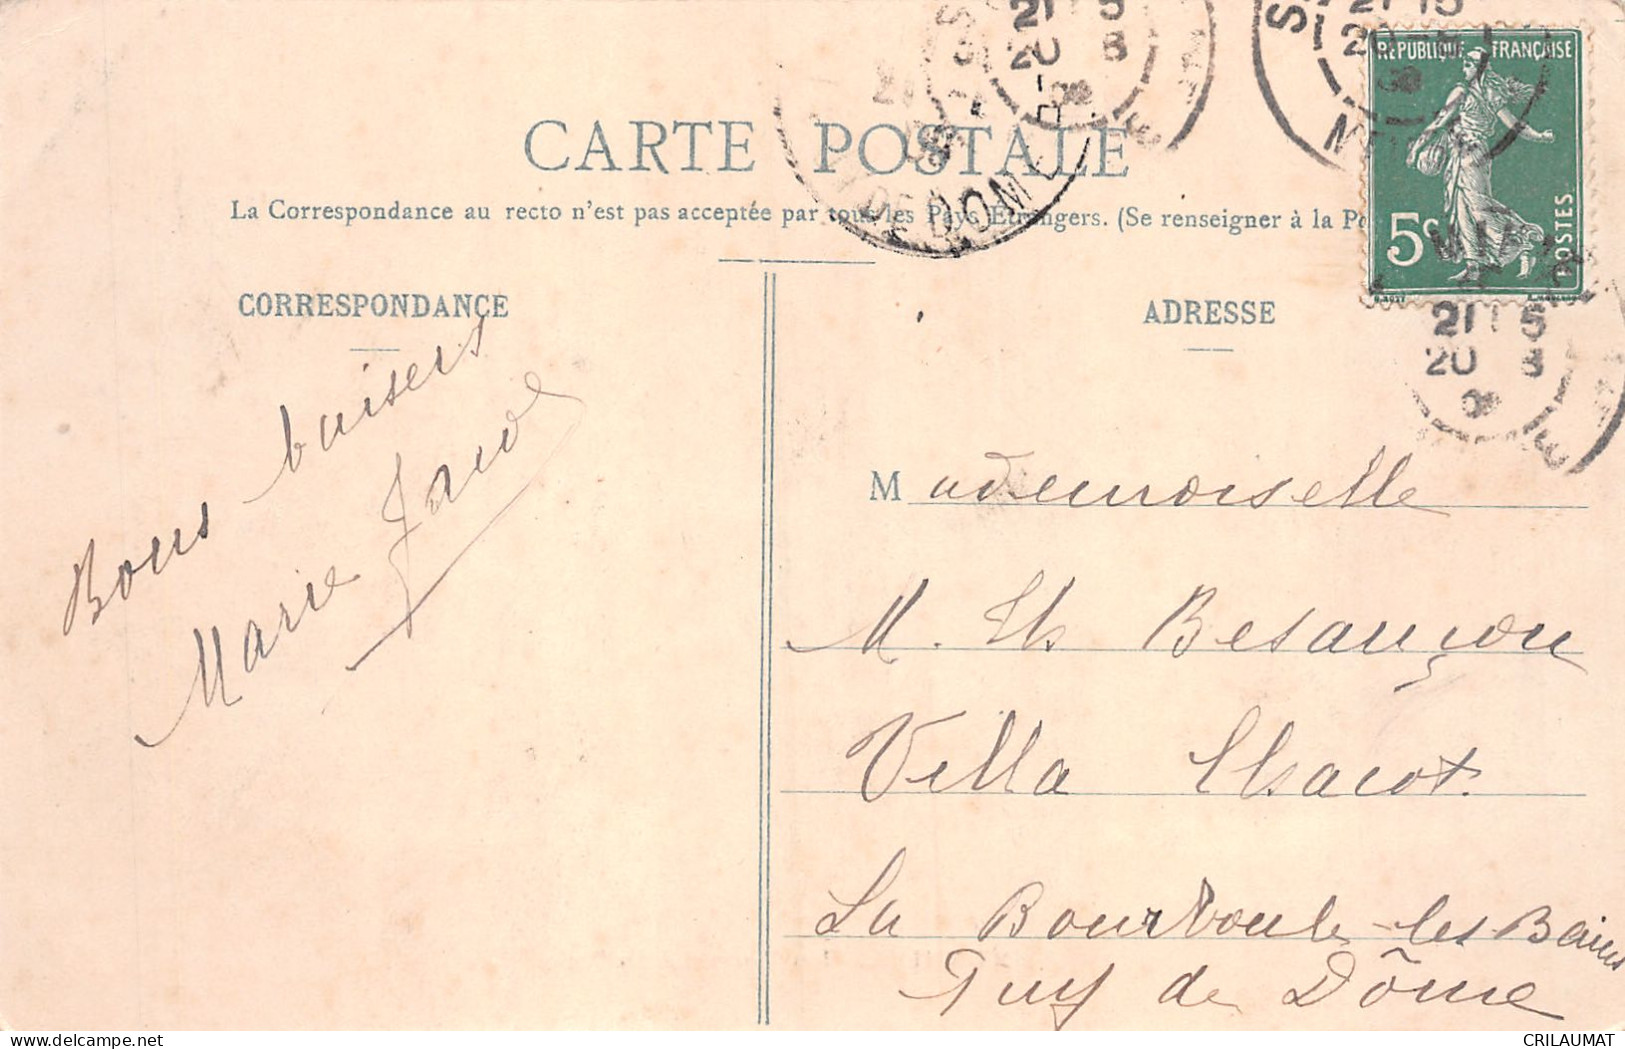 CARTE POSTALE
La Correspondance au recto n'est pas acceptée par tous les Pays Etrangers. (Se renseigner à la Po
CORRESPONDANCE
ADRESSE
REPUBLIQUE FRANÇAISE
5c
POSTES
21 15
20 - 8
21 15
20 - 8
21 15
20 8
DE DOME
Bons baisers
Marie
Mademoiselle
M. Th Besançon
Villa Chacot
La Bourboule-les-Bains
Puy de Dôme
CRILAUMAT